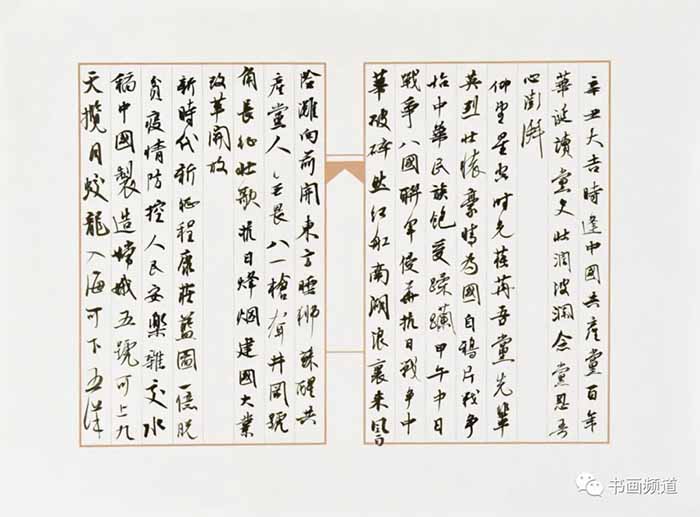 辛丑大吉時逢中國共產黨百年
華誕讀黨文壯濶波瀾念黨恩吾
心澎湃
仰望星空时光荏苒吾黨先輩
英烈壯懷豪情為國自鴉片战争
始中華民族飽受蹂躪甲午中日
戰争八國聯軍侵華抗日戰争中
華破碎然红船南湖浪裏来風口
险灘向前開東方睡狮蘇醒共
產黨人无畏八一槍聲井岡號
角長征壯歌抗日烽烟建國大業
改革開放
新時代新征程康莊藍圖一億脱
貧疫情防控人民安樂雜交水
稻中國製造嫦娥五號可上九
天攬月蛟龍入海可下五洋
书画频道